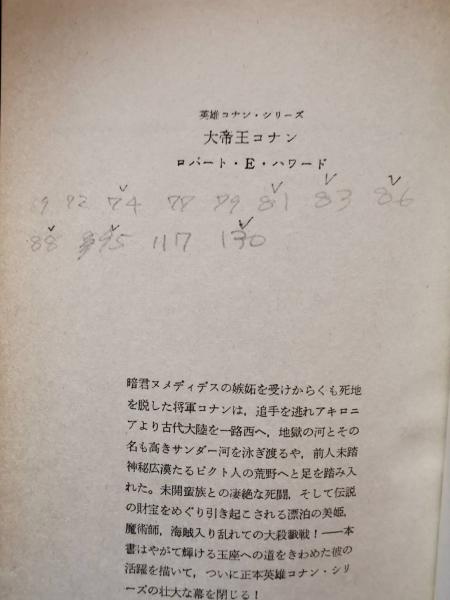 英雄コナン・シリーズ
大帝王コナン
ロバート・E・ハワード
69 72 74 77 79 81 83 86
88 95 117 130
暗君ヌメディデスの嫉妬を受けからくも死地
を脱した将軍コナンは，追手を逃れアキロニ
アより古代大陸を一路西へ，地獄の河とその
名も高きサンダー河を泳ぎ渡るや，前人未踏
神秘広漠たるピクト人の荒野へと足を踏み入
れた。未開蛮族との凄絶な死闘，そして伝説
の財宝をめぐり引き起こされる漂泊の美姫，
魔術師，海賊入り乱れての大殺戮戦！――本
書はやがて輝ける玉座への道をきわめた彼の
活躍を描いて，ついに正本英雄コナン・シリ
ーズの壮大な幕を閉じる！